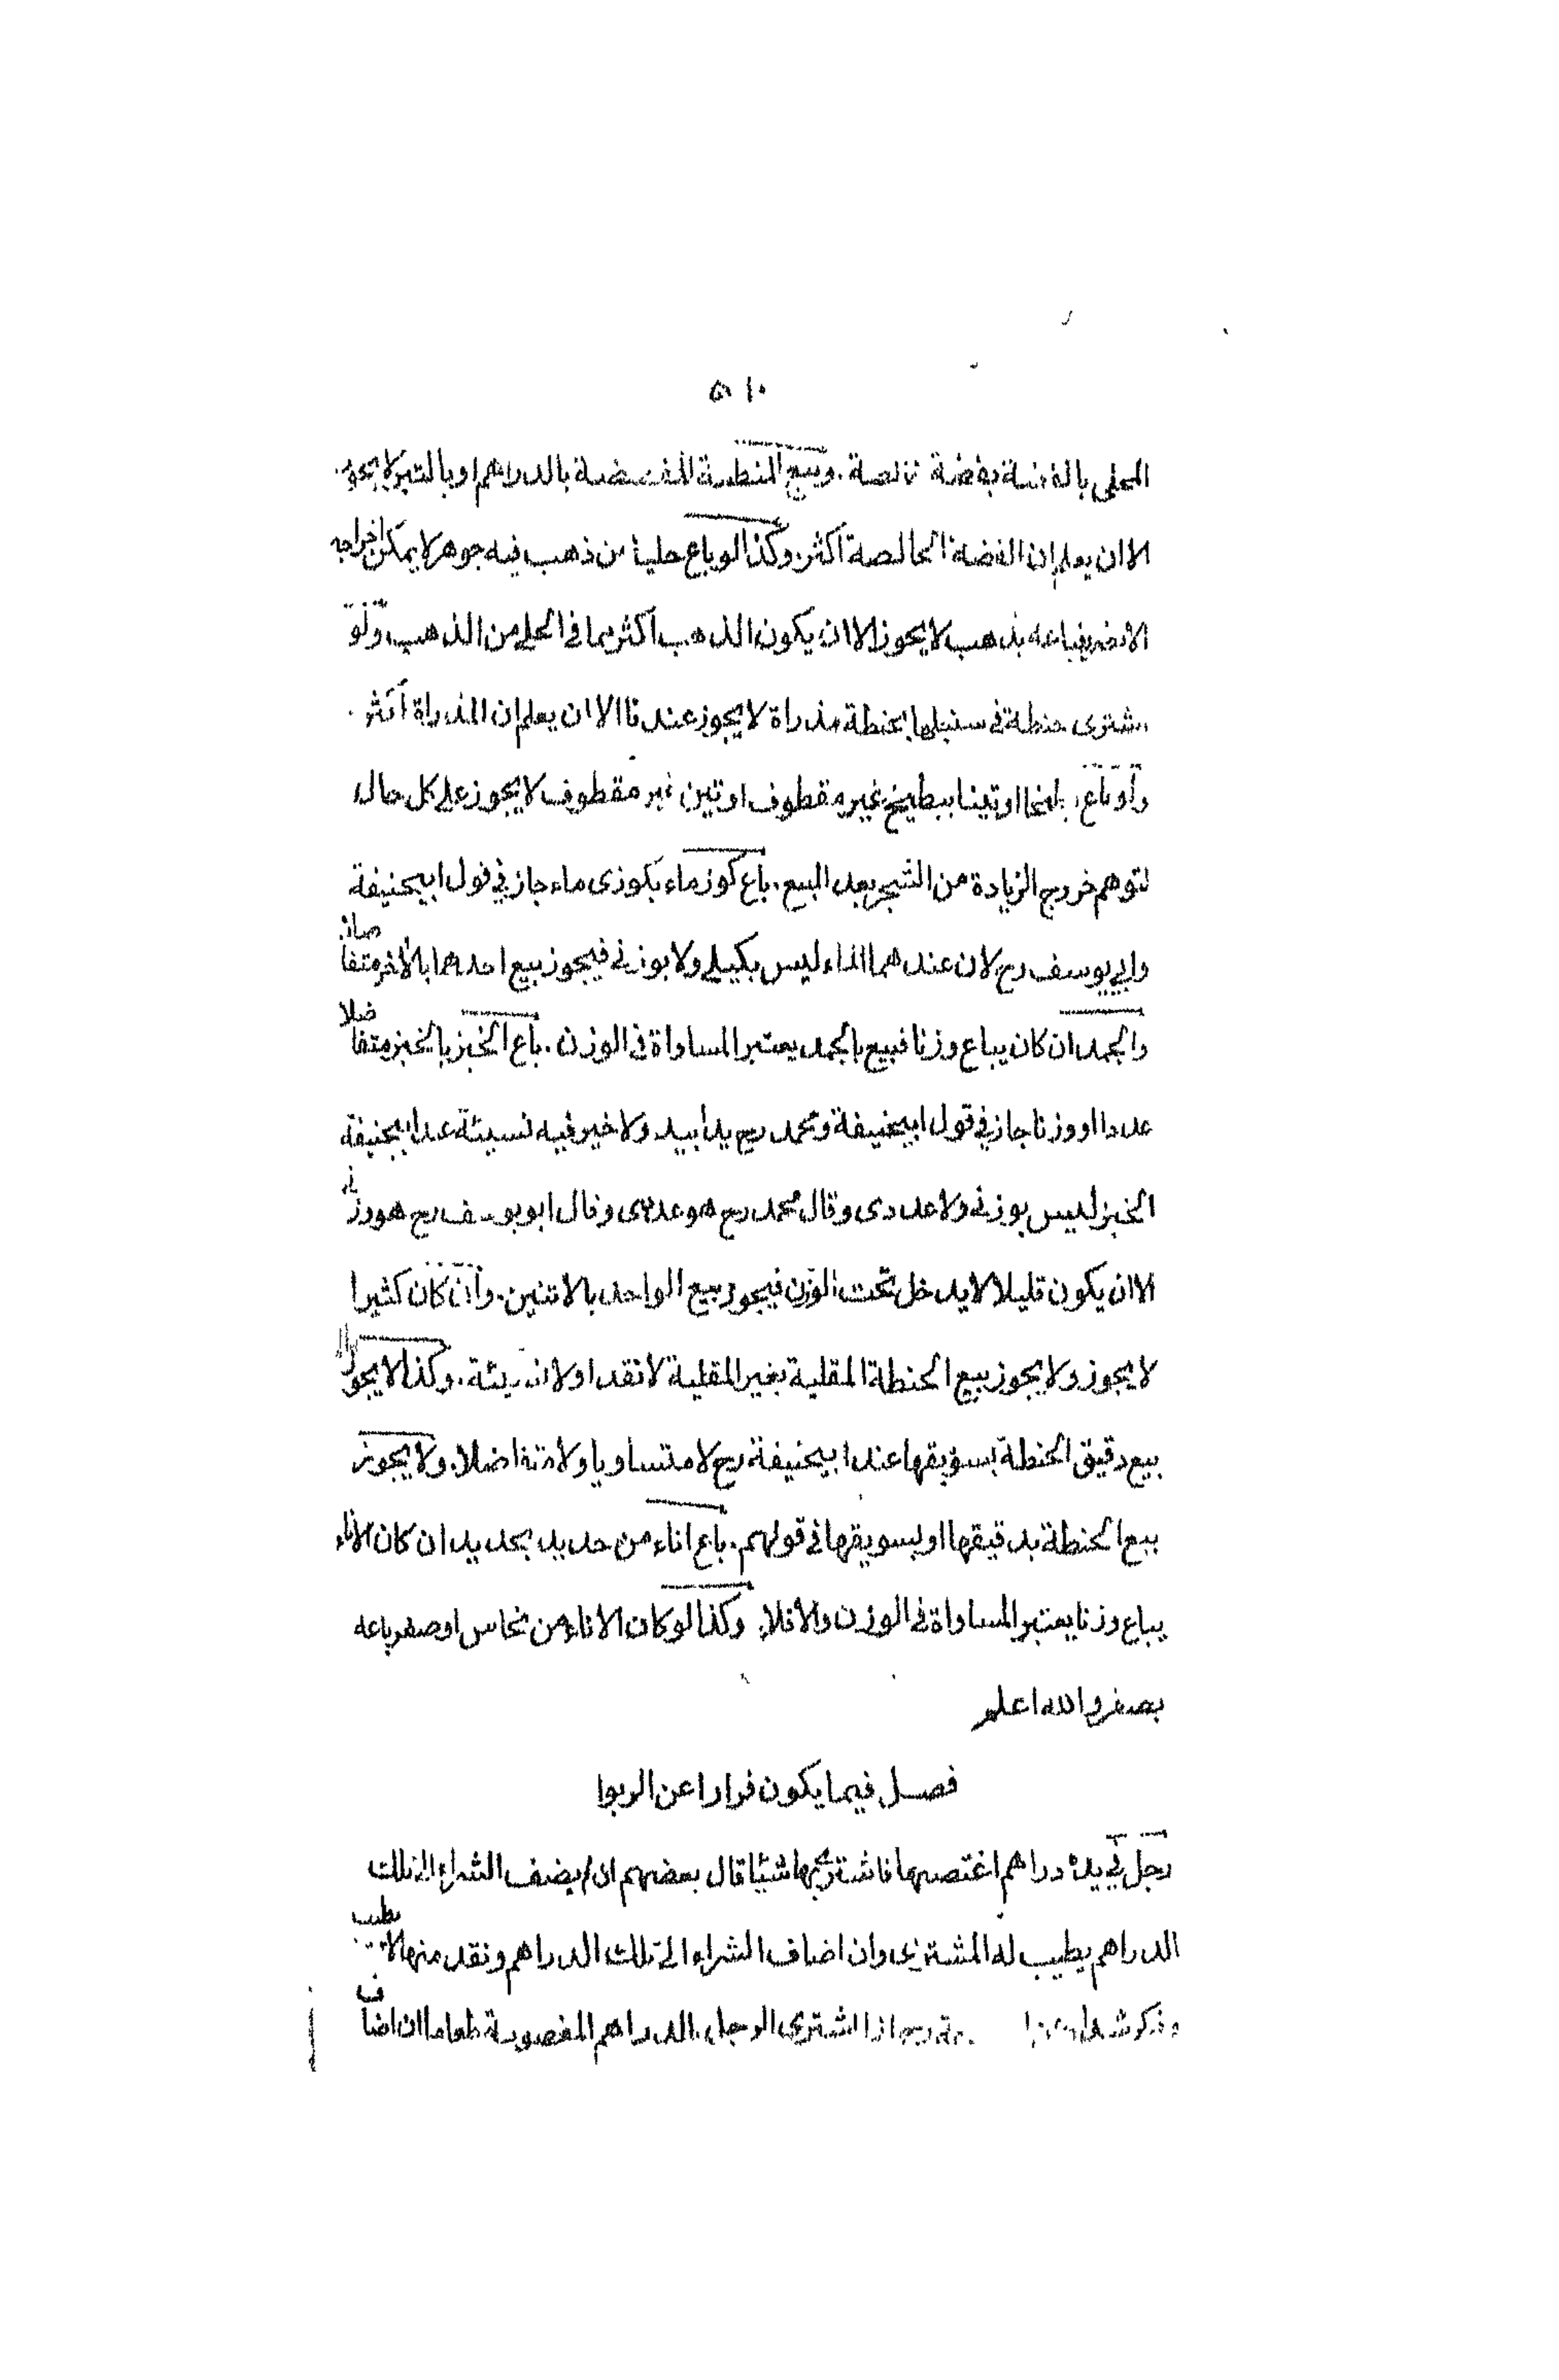 ٥١٠
المحلى بالفضة بفضة خالصة. وبيع المنطقة المفضضة بالدراهم او بالتبر لا يجوز
الا ان يعلم ان الفضة الخالصة اكثر. وكذا لو باع حليا من ذهب فيه جوهر لا يمكن اخراجه
الا بضرر فباعه بذهب لا يجوز الا ان يكون الذهب اكثر مما فى الحلى من الذهب. ولو
اشترى حنطة فى سنبلها بحنطة مذراة لا يجوز عندنا الا ان يعلم ان المذراة اكثر.
ولو باع بطيخا او تينا ببطيخ غير مقطوف او تين غير مقطوف لا يجوز على كل حال
لتوهم خروج الزيادة من الشجر بعد البيع. باع كوز ماء بكوزى ماء جاز في قول ابيحنيفة
وابي يوسف رح لان عندهما الماء ليس بكيلى ولا بوزنى فيجوز بيع احدهما بالآخر متفاضلا
والجمد ان كان يباع وزنا فبيع بالجمد يعتبر المساواة فى الوزن. باع الخبز بالخبز متفاضلا
عددا او وزنا جاز في قول ابيحنيفة ومحمد رح يدا بيد ولا خير فيه نسيئة عند ابيحنيفة
الخبز ليس بوزنى ولا عددى وقال محمد رح هو عددى وقال ابو يوسف رح هو وزنى
الا ان يكون قليلا لا يدخل تحت الوزن فيجوز بيع الواحد بالاثنين. وان كان كثيرا
لا يجوز ولا يجوز بيع الحنطة المقلية بغير المقلية لا نقدا ولا نسيئة. وكذا لا يجوز
بيع دقيق الحنطة بسويقها عند ابيحنيفة رح لا متساويا ولا متفاضلا. ولا يجوز
بيع الحنطة بدقيقها او بسويقها فى قولهم. باع اناء من حديد بحديد ان كان الاناء
يباع وزنا يعتبر المساواة فى الوزن والا فلا. وكذا لو كان الاناء من نحاس او صفر باعه
بصفر والله اعلم
فصل فيما يكون فرارا عن الربوا
رجل في يده دراهم اغتصبها فاشترى بها شيئا قال بعضهم ان لم يضف الشراء الى تلك
الدراهم يطيب له المشترى وان اضاف الشراء الى تلك الدراهم ونقد منها لا يطيب
وذكر شداد رح اذا اشترى الرجل بالدراهم المغصوبة طعاما ان اضاف